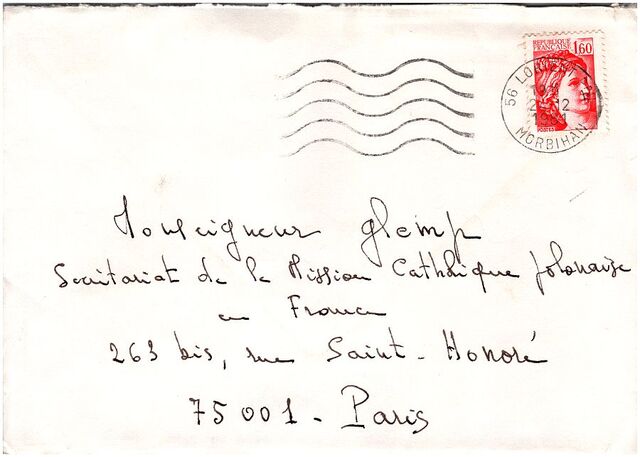 REPUBLIQUE
FRANCAISE
1,60
POSTES
56 LORIENT
12
1981
MORBIHAN
Monseigneur Glemp
Secrétariat de la Mission Catholique Polonaise
en France
263 bis, rue Saint-Honoré
75001 - Paris